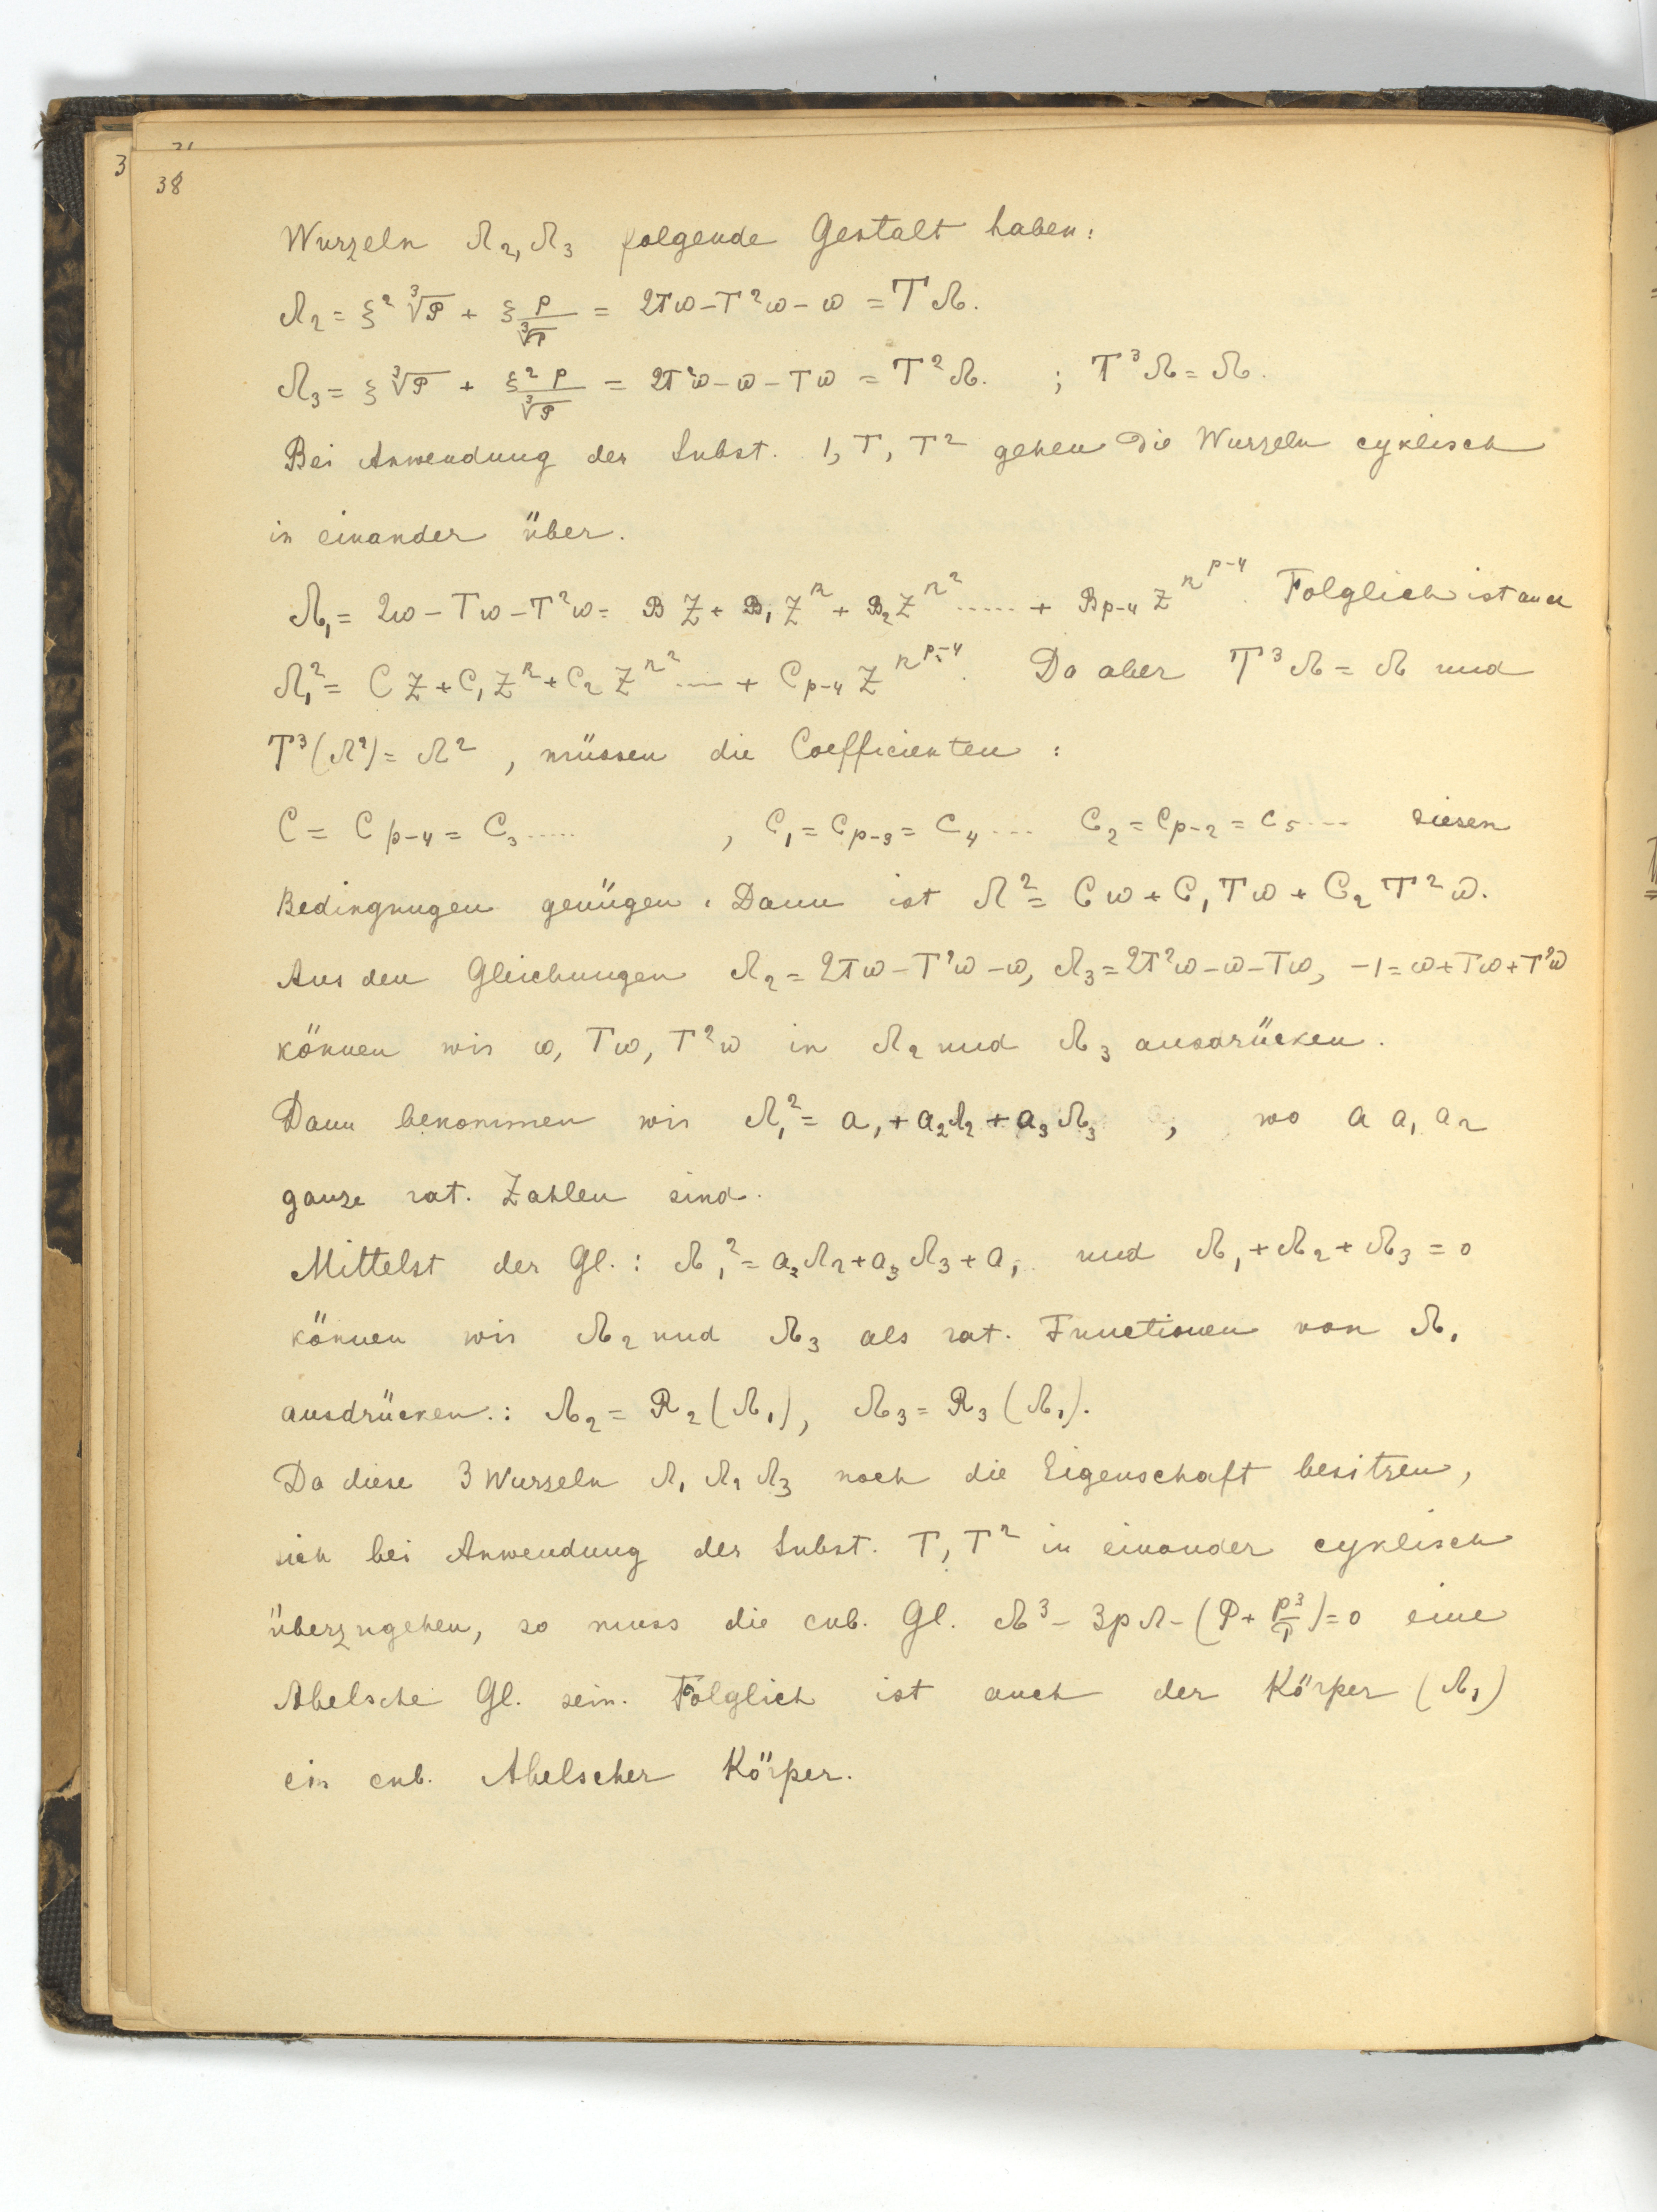 3
38
Wurzeln Λ₂, Λ₃ folgende Gestalt haben:
Λ₂ = ξ² ∛P + ξ p/∛P = 2Tω − T²ω − ω = TΛ.
Λ₃ = ξ ∛P + ξ² p/∛P = 2T²ω − ω − Tω = T²Λ. ; T³Λ = Λ.
Bei Anwendung der Subst. 1, T, T² gehen die Wurzeln cyklisch
in einander über.
Λ₁ = 2ω − Tω − T²ω = B Z + B₁ Z^r + B₂ Z^r² ..... + B_p-4 Z^r^p-4. Folglich ist auch
Λ₁² = C Z + C₁ Z^r + C₂ Z^r² ..... + C_p-4 Z^r^p-4. Da aber T³Λ = Λ und
T³(Λ²) = Λ², müssen die Coefficienten :
C = C_p-4 = C₃ ..... , C₁ = C_p-3 = C₄ ... C₂ = C_p-2 = C₅ ... diesen
Bedingungen genügen. Dann ist Λ² = Cω + C₁Tω + C₂T²ω.
Aus den Gleichungen Λ₂ = 2Tω − T²ω − ω, Λ₃ = 2T²ω − ω − Tω, −1 = ω + Tω + T²ω
können wir ω, Tω, T²ω in Λ₂ und Λ₃ ausdrücken.
Dann bekommen wir Λ₁² = a₁ + a₂Λ₂ + a₃Λ₃ , wo a a₁ a₂
ganze rat. Zahlen sind.
Mittelst der Gl. : Λ₁² = a₂Λ₂ + a₃Λ₃ + a₁ und Λ₁ + Λ₂ + Λ₃ = 0
können wir Λ₂ und Λ₃ als rat. Functionen von Λ₁
ausdrücken. : Λ₂ = R₂(Λ₁), Λ₃ = R₃(Λ₁).
Da diese 3 Wurzeln Λ₁ Λ₂ Λ₃ noch die Eigenschaft besitzen,
sich bei Anwendung der Subst. T, T² in einander cyklisch
überzugehen, so muss die cub. Gl. Λ³ − 3pΛ − (P + p³/P) = 0 eine
Abelsche Gl. sein. Folglich ist auch der Körper (Λ₁)
ein cub. Abelscher Körper.